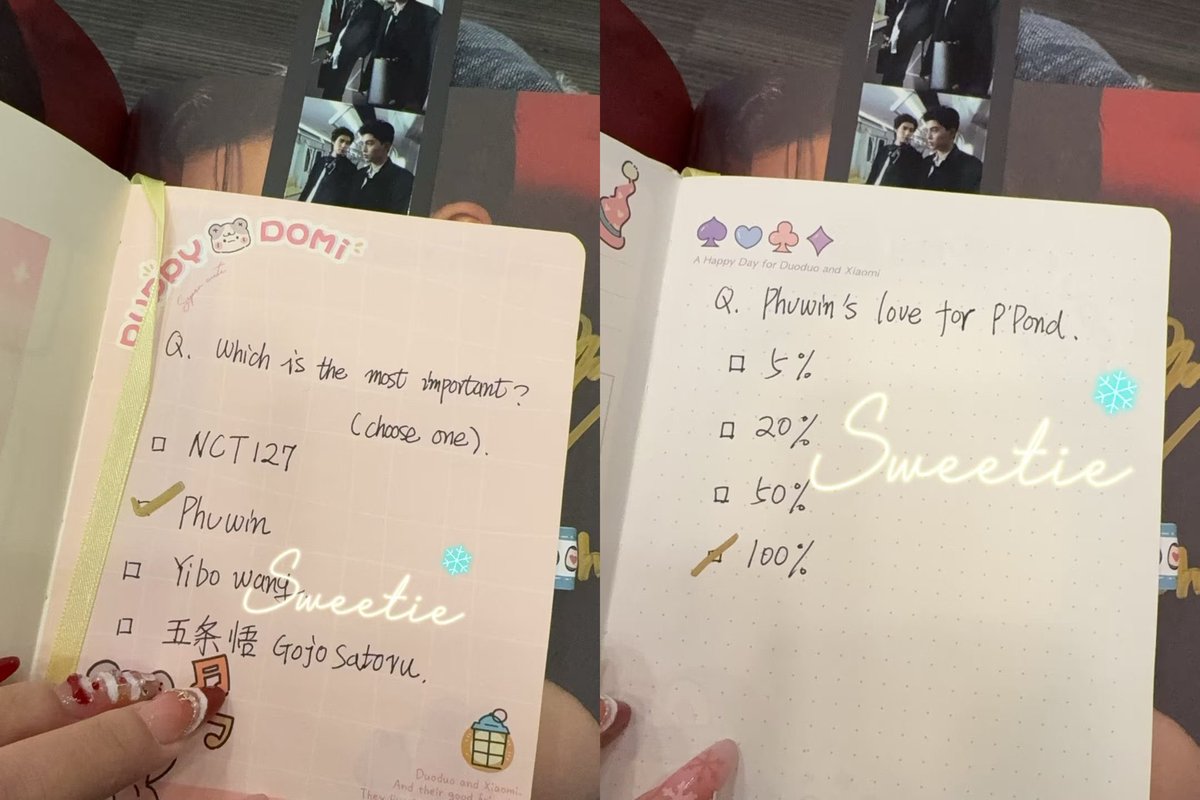 PUPPY DOMi
Q. Which is the most important?
(choose one).
NCT127
Phuwin
Yibo wang
五条悟 Gojo Satoru.
Sweetie
Duoduo and Xiaomi
And their good
A Happy Day for Duoduo and Xiaomi
Q. Phuwin's love for P'Pond.
5%
20%
50%
100%
Sweetie